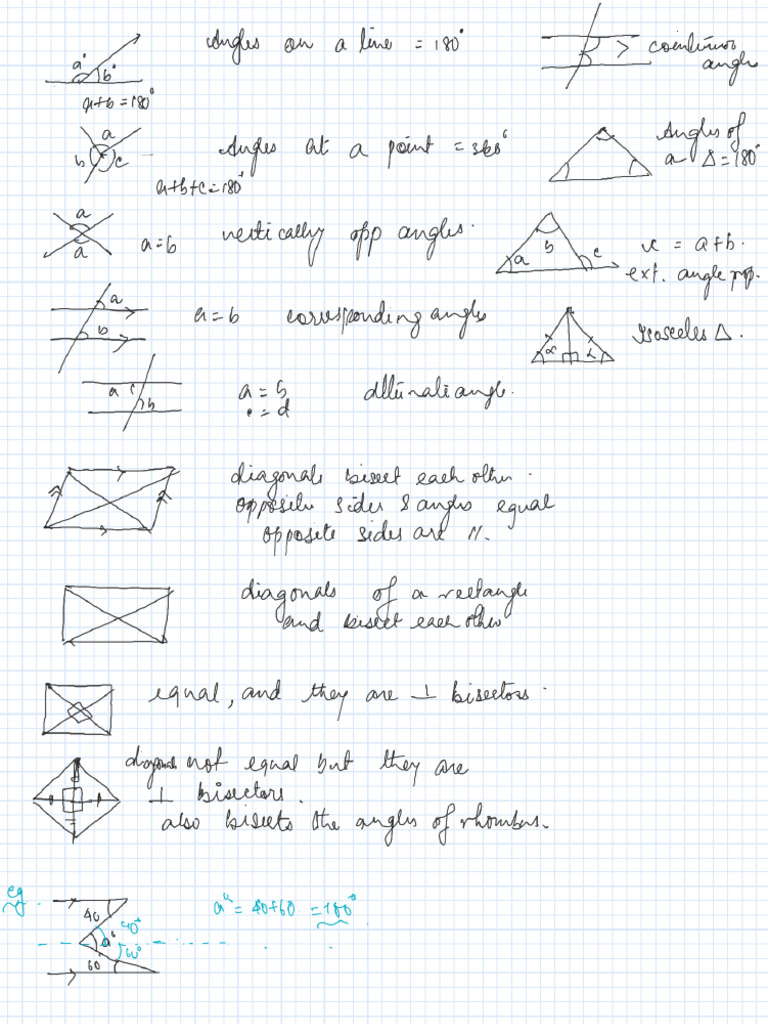 a° b°
Angles on a line = 180°
a+b = 180°
cointerior
angle
a
b c
Angles at a point = 360°
a+b+c = 180°
Angles of
a Δ = 180°
a
a
a = b
vertically opp angles.
a b c
x = a+b.
ext. angle prop.
a
b
a = b corresponding angles
α α
isosceles Δ.
a c
b
a = b alternate angle.
c = d
diagonals bisect each other.
opposite sides & angles equal
opposite sides are //.
diagonals of a rectangle
and bisect each other
equal, and they are ⊥ bisectors.
diagonals not equal but they are
⊥ bisectors.
also bisects the angles of rhombus.
eg.
40 40°
a°
60° 60°
a° = 40+60 = 100°